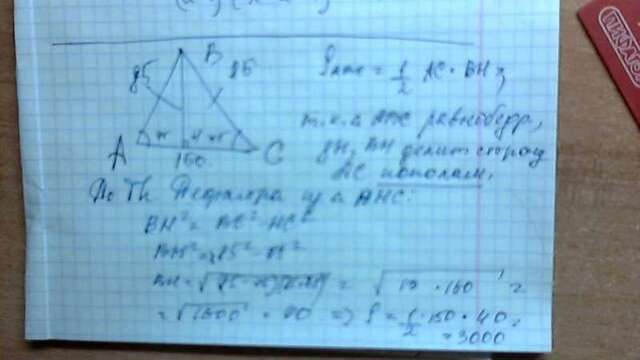 B
85 85
A H C
150
S = 1/2 AC · BH;
т.к. △ ABC равнобедр,
BH делит сторону
AC пополам.
По Th Пифагора из △
BH² = BC² - HC²
BH² = 85² - 75²
BH = √ = √10 · 160 =
= √1600 = 40 => S = 1/2 · 150 · 40 =
= 3000